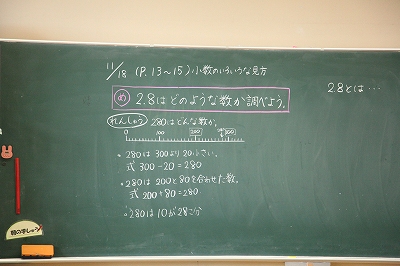 11/18 (P.13~15) 小数のいろいろな見方
め 2.8は どのような数か調べよう。
2.8とは・・・
れんしゅう 280はどんな数か。
0 100 200 300
。280は300より20小さい。
式 300-20=280
。280は200と80を合わせた数。
式 200+80=280
。280は10が28こ分